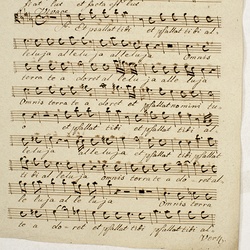 fiat tui et facta est tui
Vivace Et psallat tibi al-
leluja alleluja alleluja Omnis
terra te a doret al le lu ja alle luja
Omnis terra te a doret et psallat nomini tu-
o et psallat tibi et psallat tibi al-
leluja alleluja et psallat tibi et
psallat tibi omnis terra te a do ret al-
le luja al le luja Omnis terra
te a do ret et psallat tibi et psallat tibi al-